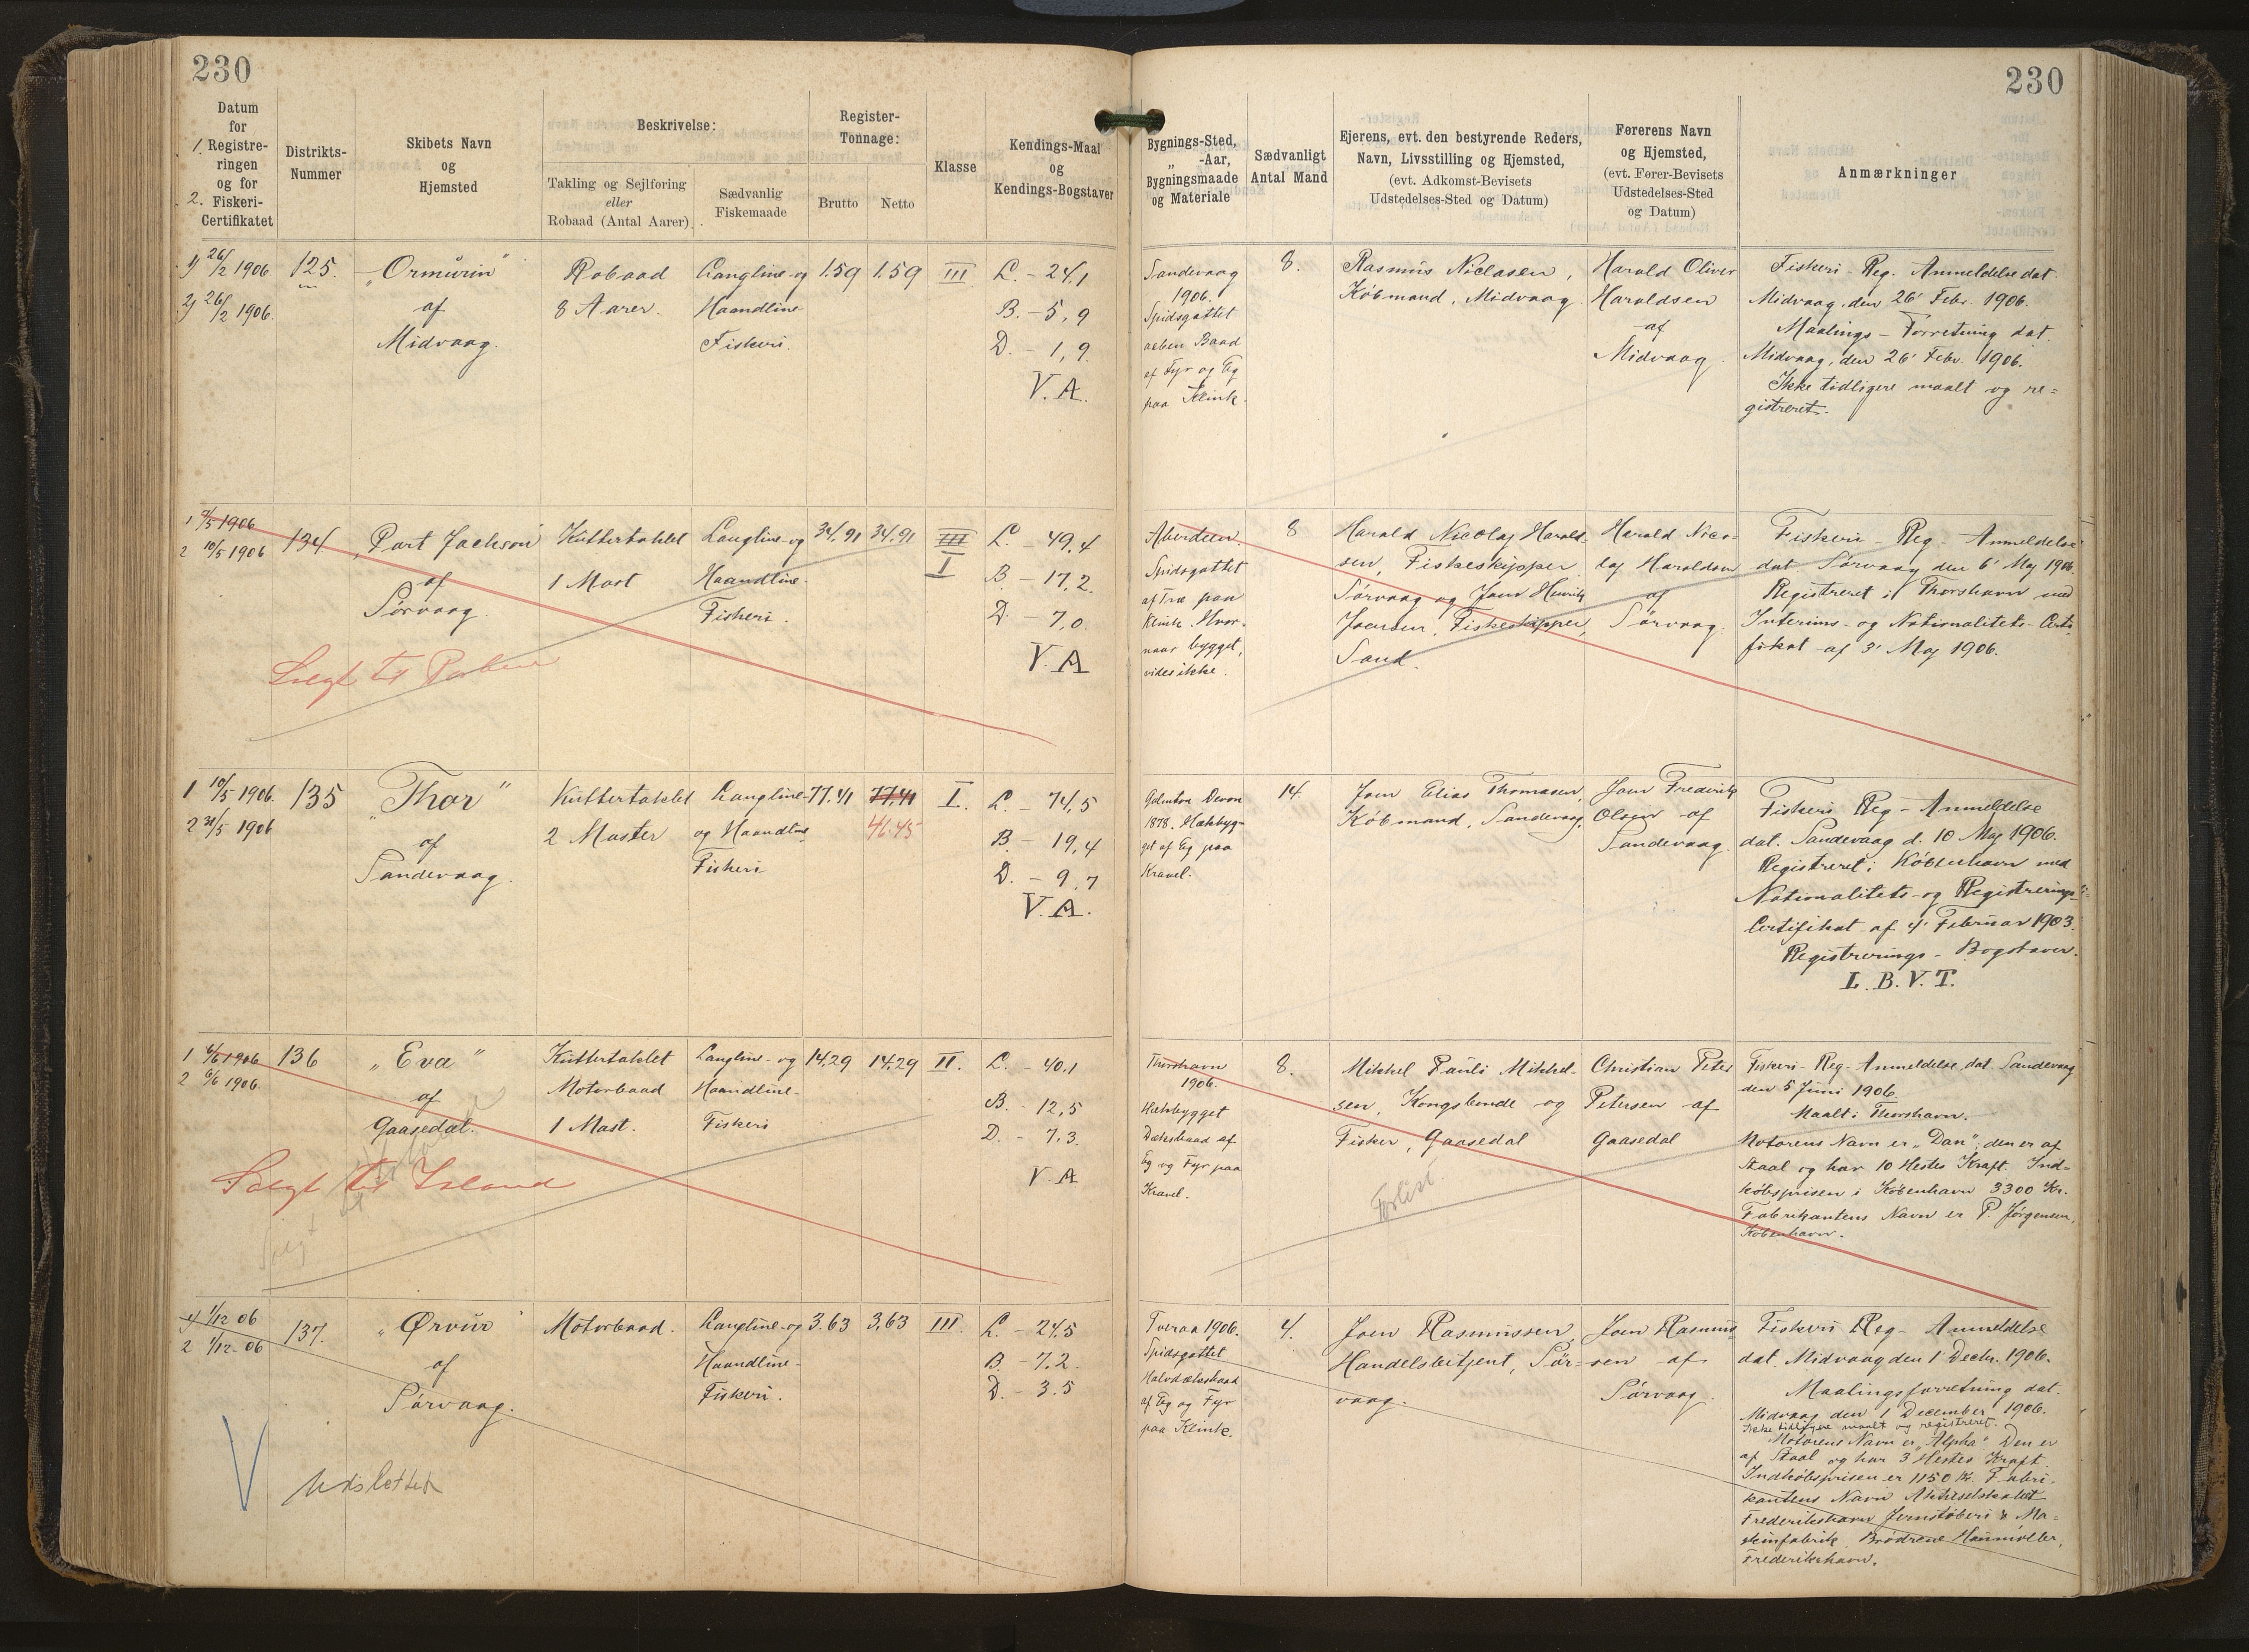 230
230
Datum
for
1. Registre-
ringen
og for
2. Fiskeri-
Certifikatet
Distrikts-
Nummer
Skibets Navn
og
Hjemsted
Beskrivelse:
Takling og Sejlføring
eller
Robaad (Antal Aarer)
Sædvanlig
Fiskemaade
Register-
Tonnage:
Brutto
Netto
Klasse
Kendings-Maal
og
Kendings-Bogstaver
Bygnings-Sted,
„ -Aar,
Bygningsmaade
og Materiale
Sædvanligt
Antal Mand
Ejerens, evt. den bestyrende Reders,
Navn, Livsstilling og Hjemsted,
(evt. Adkomst-Bevisets
Udstedelses-Sted og Datum)
Førerens Navn
og Hjemsted,
(evt. Fører-Bevisets
Udstedelses-Sted
og Datum)
Anmærkninger
1) 26/2 1906.
2) 26/2 1906.
125.
„Ormurin"
af
Midvaag.
Robaad
8 Aarer.
Langline- og
Haandline
Fiskeri.
1.59
1.59
III
L. - 24,1
B. - 5,9
D. - 1,9
V. A.
Sandevaag
1906.
Spidsgattet
aaben Baad
af Fyr og Eg
paa Klink.
8.
Rasmus Niclasen,
Købmand, Midvaag.
Harald Oliver
Haraldsen
af
Midvaag.
Fiskeri-Reg. Anmeldelse dat.
Midvaag, den 26' Febr. 1906.
Maalings-Forretning dat.
Midvaag, den 26' Febr. 1906.
Ikke tidligere maalt og re=
gistreret.
1 7/5 1906
2 10/5 1906
134.
„Port Jackson"
af
Sørvaag.
Kuttertaklet
1 Mast
Langline- og
Haandline-
Fiskeri.
34.91
34.91
III
I
L. - 49,4
B. - 17,2.
D. - 7,0.
V. A
Solgt til
Aberdeen.
Spidsgattet
af Træ paa
Klink. Hvor-
naar bygget,
vides ikke.
8
Harald Nicolaj Harald-
sen, Fiskeskipper
Sørvaag og Joen Henrik
Joensen, Fiskeskipper,
Sand.
Harald Nico-
laj Haraldsen
af
Sørvaag.
Fiskeri-Reg-Anmeldelse
dat. Sørvaag den 6' Maj 1906.
Registreret i Thorshavn med
Interims- og Nationalitets-Certi-
fikat af 3' Maj 1906.
1 10/5 1906.
2 31/5 1906
135
„Thor"
af
Sandevaag.
Kuttertaklet
2 Master
Langline-
og Haandline
Fiskeri
77.41
77.41
46.45
I.
L. - 74,5
B. - 19,4
D. - 9,7
V. A.
Galmton Devon
1878. Hækbyg-
get af Eg paa
Kravel.
14.
Joen Elias Thomasen,
Købmand, Sandevaag.
Joen Frederik
Olsen af
Sandevaag.
Fiskeri Reg-Anmeldelse
dat. Sandevaag d. 10 Maj 1906.
Registreret i København med
Nationalitets- og Registrerings-
Certifikat af 4' Februar 1903.
Registrerings-Bogstaver.
L. B. V. T.
1 6/6 1906
2 6/6 1906.
136
„Eva"
af
Gaasedal.
Kuttertaklet
Motorbaad
1 Mast.
Langline- og
Haandline-
Fiskeri
14.29
14.29
II.
L. - 40,1
B. - 12,5
D. - 7,3.
V. A
Solgt til Island
Solgt
Thorshavn
1906.
Hækbygget
Dæksbaad af
Eg og Fyr paa
Kravel.
8.
Mikkel Pauli Mikkel-
sen, Kongsbonde og
Fisker, Gaasedal
Forlist.
Christian Peter
Petersen af
Gaasedal
Fiskeri-Reg-Anmeldelse, dat. Sandevaag
den 5 Juni 1906.
Maalt i Thorshavn.
Motorens Navn er „Dan"; den er af
Staal og har 10 Hestes Kraft. Ind-
købsprisen i København 3300 Kr.
Fabrikantens Navn er P. Jørgensen,
København.
1) 1/12 06
2 1/12-06
137.
„Ørvur"
af
Sørvaag.
Motorbaad.
Langline- og
Haandline-
Fiskeri.
3.63
3.63
III.
L. - 24,5
B. - 7.2
D. - 3.5
Udslettet
Tveraa 1906.
Spidsgattet
Halvdæksbaad
af Eg og Fyr
paa Klink.
4.
Joen Rasmussen,
Handelsbetjent, Sør-
vaag.
Joen Rasmus-
sen af
Sørvaag.
Fiskeri Reg-Anmeldelse
dat. Midvaag den 1' Decbr. 1906.
Maalingsforretning dat.
Midvaag den 1 December 1906.
Ikke tidligere maalt og registreret.
Motorens Navn er „Alpha". Den er
af Staal og har 3 Hestes Kraft.
Indkøbsprisen er 1150 Kr. Fabri-
kantens Navn Aktieselskabet
Frederikshavn Jernstøberi & Ma=
skinfabrik Brødrene Houmøller,
Frederikshavn.